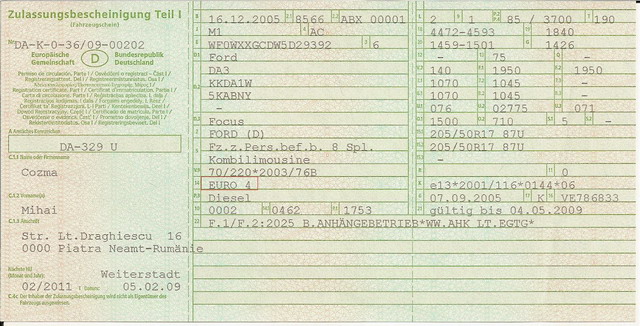 Zulassungsbescheinigung Teil I
(Fahrzeugschein)
Nr. DA-K-0-36/09-00202
Europäische Gemeinschaft D Bundesrepublik Deutschland
A Amtliches Kennzeichen
DA-329 U
C.1.1 Name oder Firmenname
Cozma
C.1.2 Vorname(n)
Mihai
C.1.3 Anschrift
Str. Lt.Draghiescu 16
0000 Piatra Neamt-Rumänie
Nächste HU
(Monat und Jahr)
Weiterstadt
02/2011 I Datum: 05.02.09
C.4c Der Inhaber der Zulassungsbescheinigung wird nicht als Eigentümer des Fahrzeugs ausgewiesen.
16.12.2005 8566 ABX 00001
M1 AC
WF0WXXGCDW5D29392 6
Ford
DA3
KKDA1W
5KABNY
-
Focus
FORD (D)
Fz.z.Pers.bef.b. 8 Spl.
Kombilimousine
70/220*2003/76B
EURO 4
Diesel
0002 0462 1753
F.1/F.2:2025 B.ANHÄNGEBETRIEB*WW.AHK LT.EGTG*
2 1 85 / 3700 190
4472-4593 1840
1459-1501 1426
- 75 -
140 1950 1950
1070 1045 -
1070 1045 -
076 02775 071
1500 710 5 -
205/50R17 87U
205/50R17 87U
-
- 0
e13*2001/116*0144*06
07.09.2005 K VE786833
gültig bis 04.05.2009